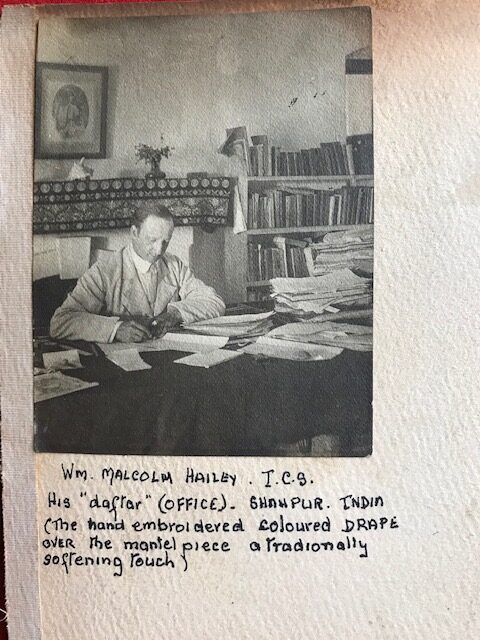 WM. MALCOLM HAILEY. I.C.S.
His "daftar" (OFFICE). SHAHPUR. INDIA
(The hand embroidered coloured DRAPE
OVER the mantel piece a tradionally
softening touch)